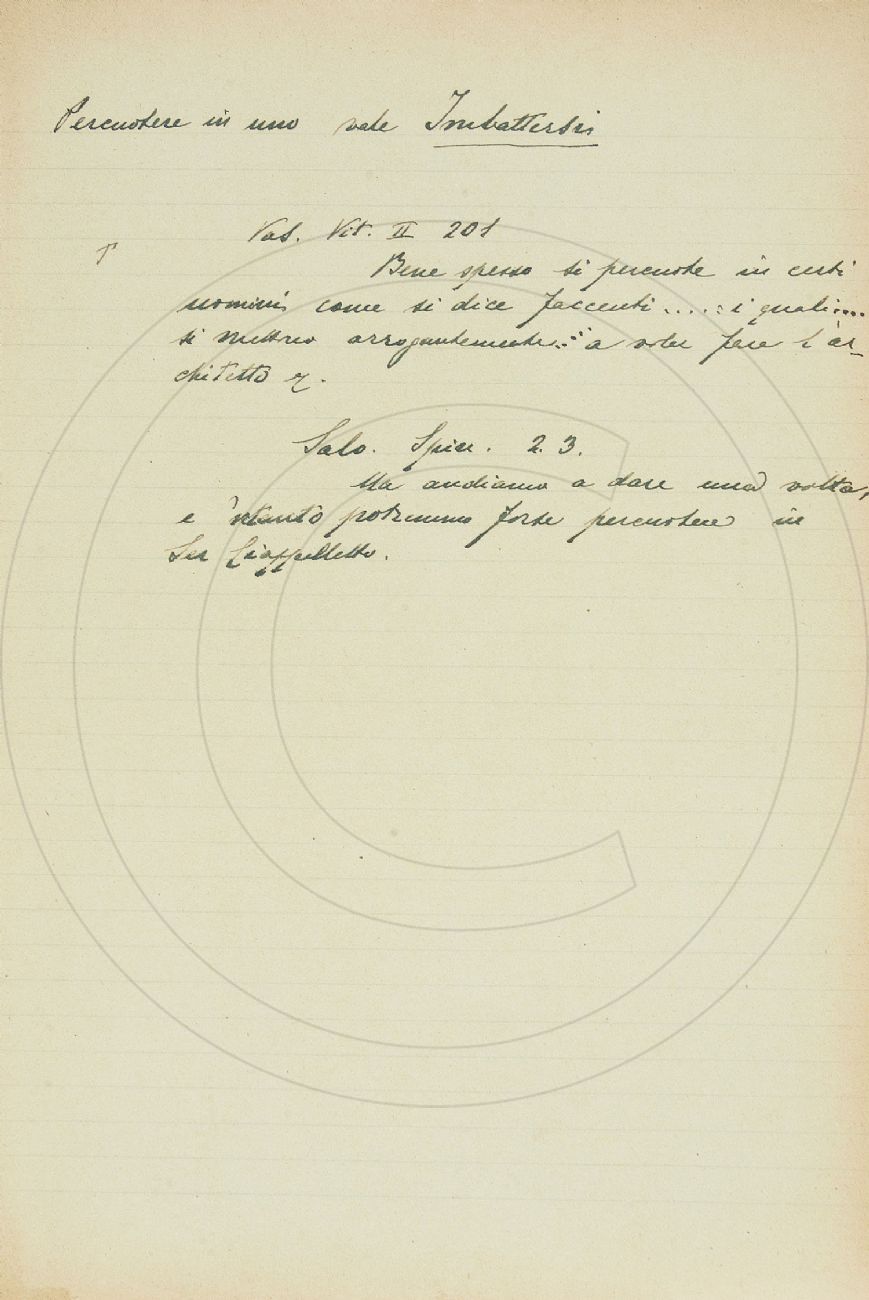 Percuotere in uno vale Imbattersi
Vas. Vit. II 201
Bene spesso si percuote in certi
uomini come si dice faccenti ....: i quali....
si mettono arrogantemente..: a voler fare l'ar-
chitetto
Salv. Spin. 2. 3.
Ma andiamo a dare una volta,
e 'ntanto potremmo forse percuotere in
Ser Ciappelletto.